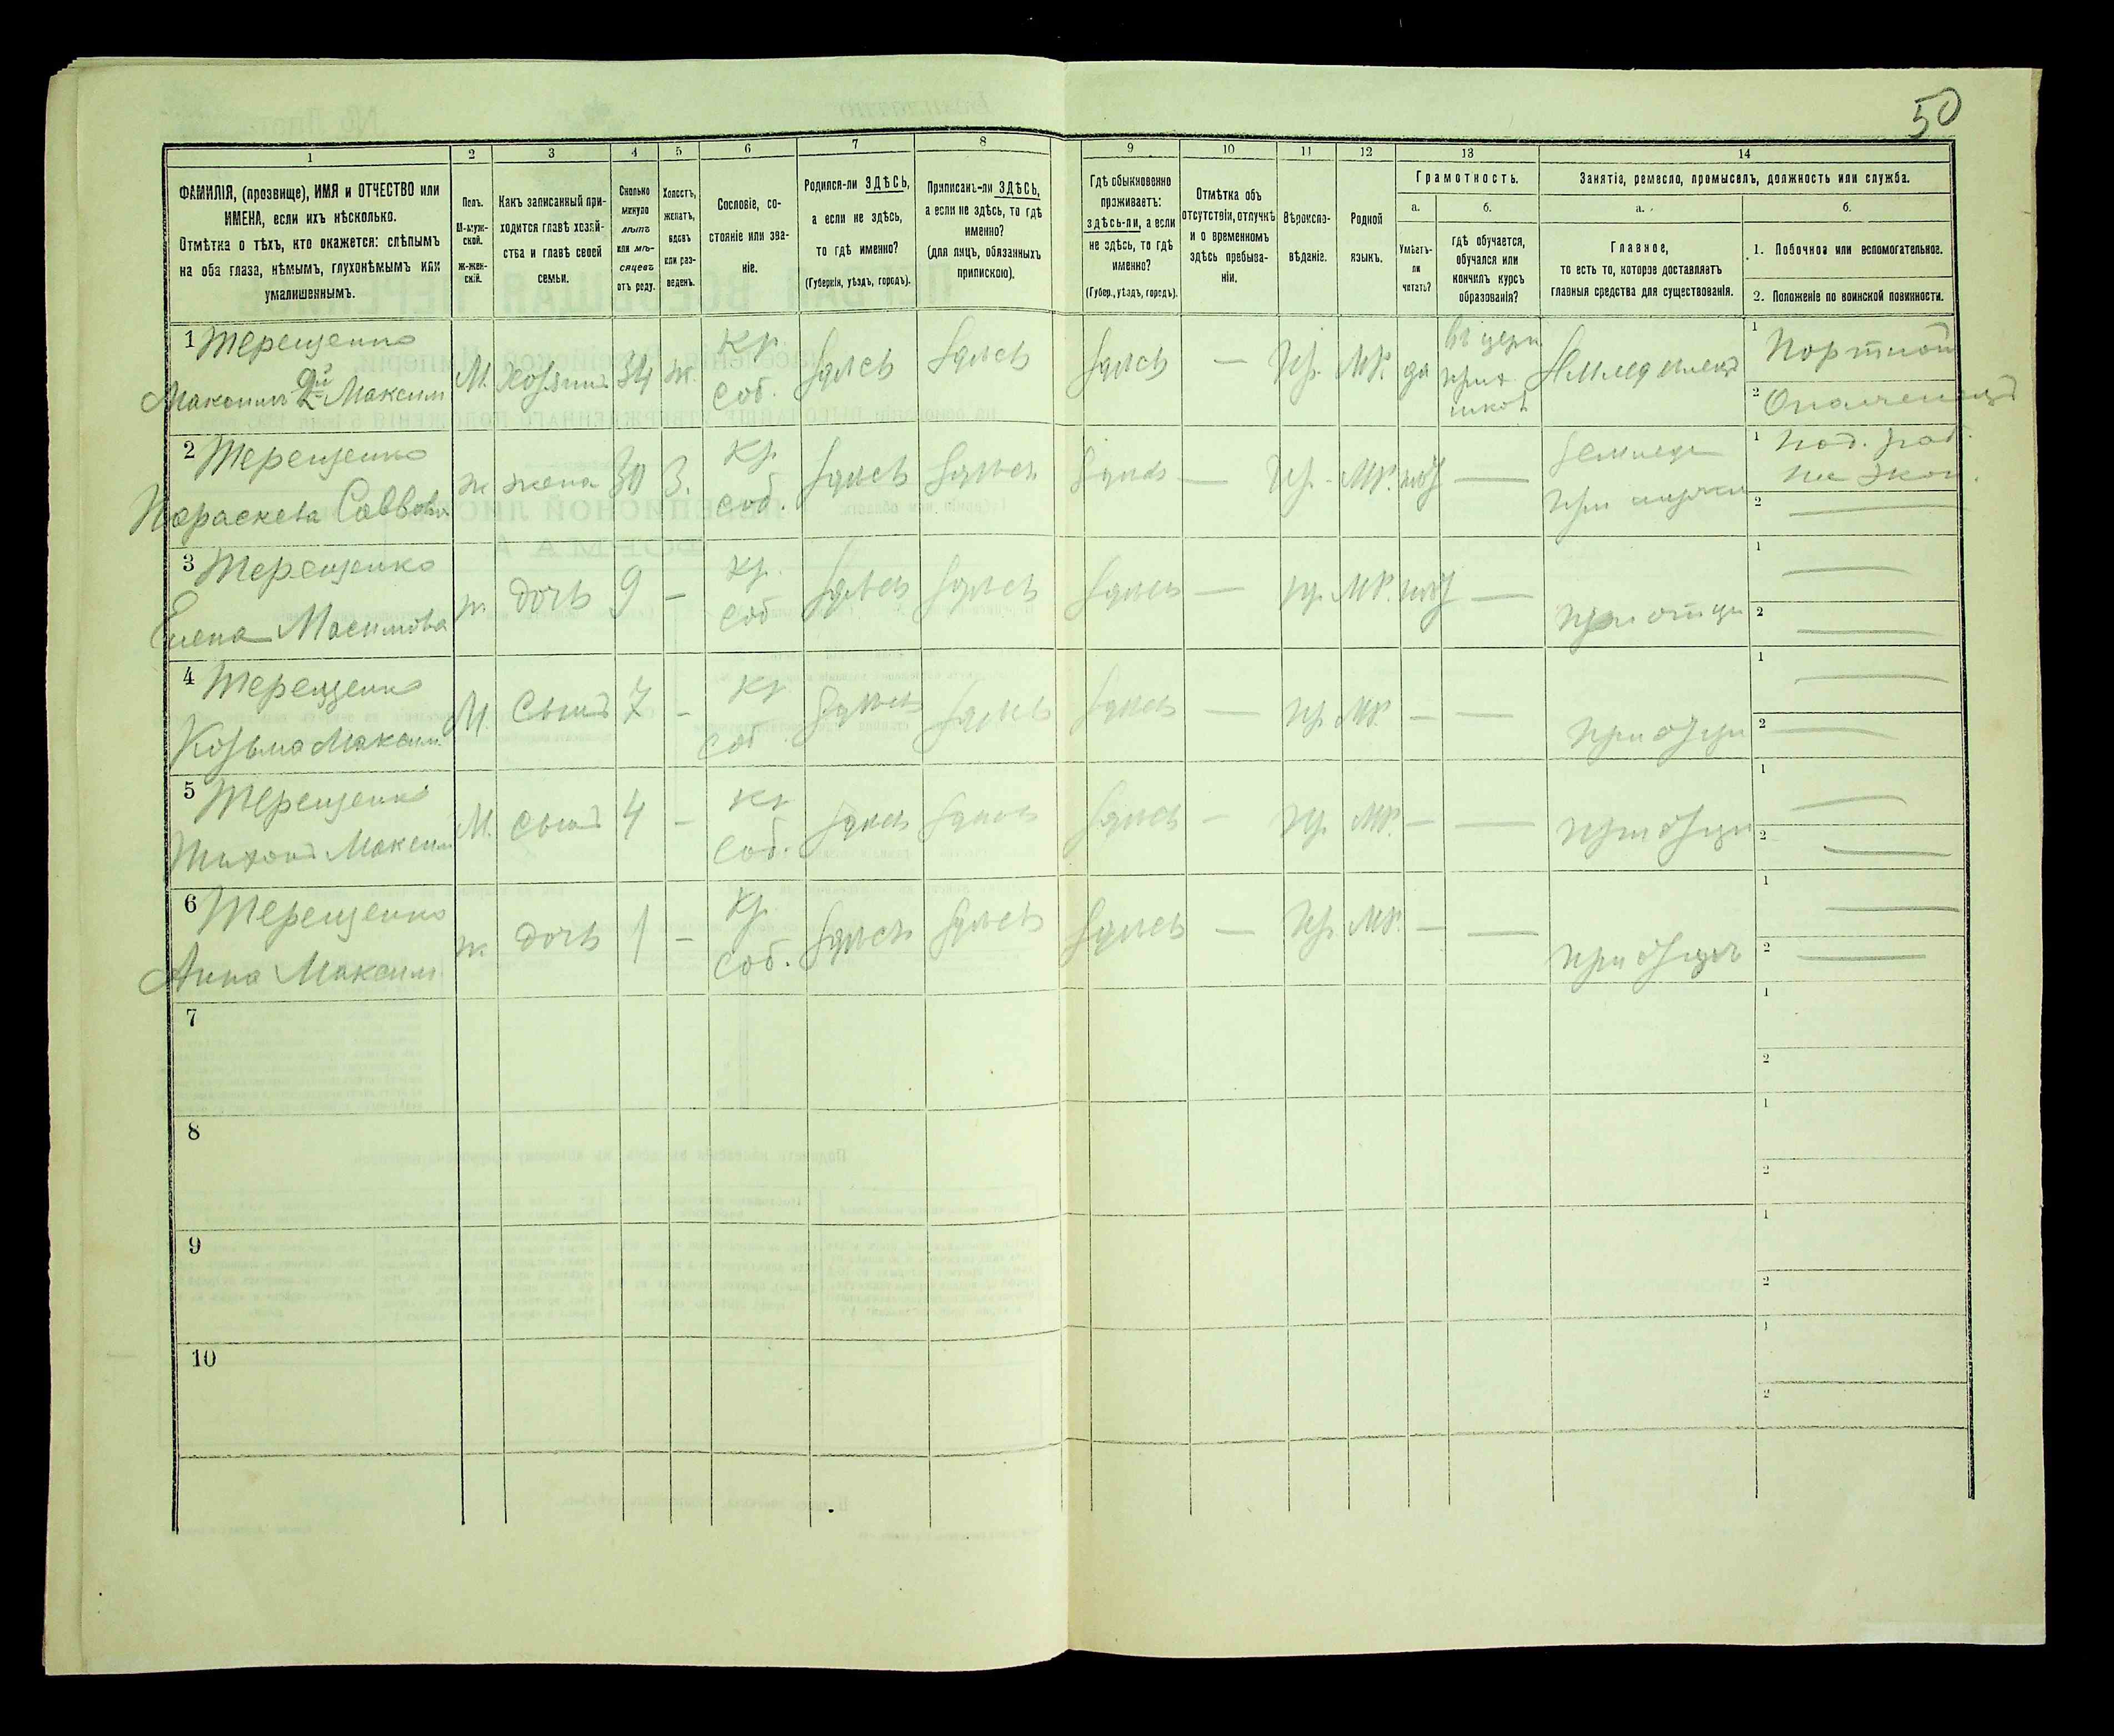 50
1
2
3
4
5
6
7
8
9
10
11
12
13
14
ФАМИЛІЯ, (прозвище), ИМЯ и ОТЧЕСТВО или
ИМЕНА, если ихъ нѣсколько.
Отмѣтка о тѣхъ, кто окажется: слѣпымъ
на оба глаза, нѣмымъ, глухонѣмымъ или
умалишеннымъ.
Полъ.
М-муж-
ской.
ж-жен-
скій.
Какъ записанный при-
ходится главѣ хозяй-
ства и главѣ своей
семьи.
Сколько
минуло
лѣтъ
или мѣ-
сяцевъ
отъ роду.
Холостъ,
женатъ,
вдовъ
или раз-
веденъ.
Сословіе, со-
стояніе или зва-
ніе.
Родился-ли ЗДѢСЬ,
а если не здѣсь,
то гдѣ именно?
(Губернія, уѣздъ, городъ).
Приписанъ-ли ЗДѢСЬ,
а если не здѣсь, то гдѣ
именно?
(для лицъ, обязанныхъ
припискою).
Гдѣ обыкновенно
проживаетъ:
здѣсь-ли, а если
не здѣсь, то гдѣ
именно?
(Губер., уѣздъ, городъ).
Отмѣтка объ
отсутствіи, отлучкѣ
и о временномъ
здѣсь пребыва-
ніи.
Вѣроиспо-
вѣданіе.
Родной
языкъ.
Грамотность.
а.
б.
Умѣетъ-
ли
читать?
гдѣ обучается,
обучался или
кончилъ курсъ
образованія?
Занятіе, ремесло, промыселъ, должность или служба.
а.
б.
Главное,
то есть то, которое доставляетъ
главныя средства для существованія.
1. Побочное или вспомогательное.
2. Положеніе по воинской повинности.
1 Терещенко
Максимъ 2й Максим
М. Хозяинъ 34 ж. Кр. Соб. здѣсь здѣсь здѣсь — Пр. МР. да въ церк прих школ Земледѣлецъ
1 Портной
2 Ополченецъ
2 Терещенко
Параскева Саввова
ж жена 30 З. Кр Соб. здѣсь здѣсь здѣсь — Пр. МР. нѣт — земледе при мужи
1 под. раб. на экон.
2 —
3 Терещенко
Елена Масимова
ж. дочь 9 — Кр. Соб здѣсь здѣсь здѣсь — пр. МР. нѣт — при отци
1 —
2 —
4 Терещенко
Козьма Максим.
М. Сынъ 7 — Кр Соб здѣсь здѣсь здѣсь — пр. МР. — — при отци
1 —
2 —
5 Терещенко
Тихонъ Максим
М. сынъ 4 — Кр Соб. здѣсь здѣсь здѣсь — Пр. МР. — — при отци
1 —
2 —
6 Терещенко
Анна Максим
ж. дочь 1 — Кр. Соб. здѣсь здѣсь здѣсь — Пр. МР. — — при отцѣ
1 —
2 —
7
1
2
8
1
2
9
1
2
10
1
2